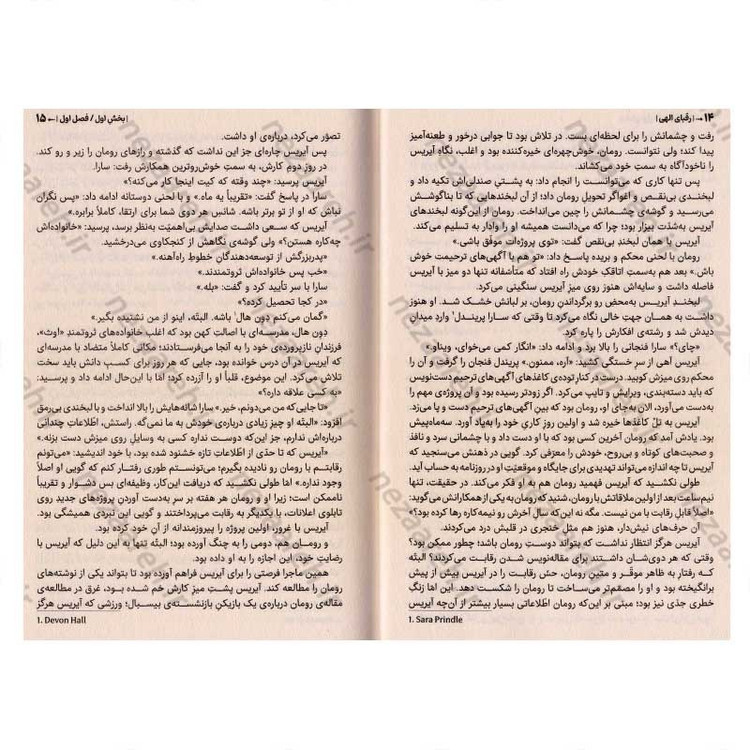 ۱۴ → | رقبای الهی |
رفت و چشمانش را برای لحظه‌ای بست. در تلاش بود تا جوابی درخور و طعنه‌آمیز
پیدا کند؛ ولی نتوانست. رومان، خوش‌چهره‌ای خیره‌کننده بود و اغلب، نگاه آیریس
را ناخودآگاه به سمت خود می‌کشاند.
پس تنها کاری که می‌توانست را انجام داد: به پشتیِ صندلی‌اش تکیه داد و
لبخندی بی‌نقص و اغواگر تحویل رومان داد؛ از آن لبخندهایی که تا بناگوشش
می‌رسید و گوشه‌ی چشمانش را چین می‌انداخت. رومان از این‌گونه لبخندهای
آیریس به‌شدت بیزار بود؛ چرا که می‌دانست همیشه او را وادار به تسلیم می‌کند.
آیریس با همان لبخند بی‌نقص گفت: «توی پروژه‌ات موفق باشی.»
رومان با لحنی محکم و بریده پاسخ داد: «تو هم با آگهی‌های ترحیمت خوش
باش.» بعد هم به‌سمتِ اتاقکِ خودش راه افتاد که متأسفانه تنها دو میز با آیریس
فاصله داشت و سایه‌اش هنوز روی میزِ آیریس سنگینی می‌کرد.
لبخندِ آیریس به‌محض رو برگرداندنِ رومان، بر لبانش خشک شد. او هنوز
داشت به همان جهتِ خالی نگاه می‌کرد تا وقتی که سارا پریندل¹ واردِ میدانِ
دیدش شد و رشته‌ی افکارش را پاره کرد.
«چای؟» سارا فنجانی را بالا برد و ادامه داد: «انگار کمی می‌خوای، وینا‌و.»
آیریس آهی از سرِ خستگی کشید: «آره، ممنون.» پریندل فنجان را گرفت و آن را
محکم روی میزش کوبید. درست در کنارِ توده‌ی کاغذهای آگهی‌های ترحیمِ دست‌نویس
که باید دسته‌بندی، ویرایش و تایپ می‌کرد. اگر زودتر رسیده بود و آن پروژه‌ی مهم را
به‌دست می‌آورد، الان به‌جای او، رومان بود که بین آگهی‌های ترحیم دست و پا می‌زد.
آیریس به تلِّ کاغذها خیره شد و اولین روزِ کاریِ خود را به‌یاد آورد. سه‌ماه‌پیش
بود. یادش آمد که رومان آخرین کسی بود که با او دست داد و با چشمانی سرد و نافذ
و صحبت‌های کوتاه و بی‌روح، خودش را معرفی کرد. گویی در ذهنش می‌سنجید که
آیریس تا چه اندازه می‌تواند تهدیدی برای جایگاه و موقعیّتِ او در روزنامه به حساب آید.
طولی نکشید که آیریس فهمید رومان هم به او فکر می‌کند. در حقیقت، تنها
نیم‌ساعت بعد از اولین ملاقاتش با رومان، شنید که رومان به یکی از همکارانش می‌گوید:
«اصلاً قابلِ رقابت با من نیست. مگه نه این‌که سالِ آخرش رو نیمه‌کاره رها کرده بود؟»
آن حرف‌های نیش‌دار، هنوز هم مثلِ خنجری در قلبش درد می‌کردند.
آیریس هرگز انتظار نداشت که بتواند دوستِ رومان باشد؛ چطور ممکن بود؟
وقتی که هر دوی‌شان داشتند برای مقاله‌نویس شدن رقابت می‌کردند؟ البتّه
که رفتارِ به ظاهر موقّر و متینِ رومان، حسِّ رقابت را در آیریس بیش از پیش
برانگیخته بود و او را مصمّم‌تر می‌ساخت تا رومان را شکست دهد. این امّا زنگِ
خطری جدّی نیز بود؛ مبنی بر این‌که رومان اطلاعاتی بسیار بیشتر از آن‌چه آیریس
1. Sara Prindle
| بخش اول / فصل اول | ← ۱۵
تصوّر می‌کرد، درباره‌ی او داشت.
پس آیریس چاره‌ای جز این نداشت که گذشته و رازهای رومان را زیر و رو کند.
در روزِ دومِ کارش، به سمتِ خوش‌روترین همکارش رفت: سارا.
آیریس پرسید: «چند وقته که کیت اینجا کار می‌کنه؟»
سارا در پاسخ گفت: «تقریباً یه ماه.» و با لحنی دوستانه ادامه داد: «پس نگران
نباش که او از تو برتر باشه. شانسِ هر دوی شما برای ارتقا، کاملاً برابره.»
آیریس که سعی داشت صدایش بی‌اهمیّت به‌نظر برسد، پرسید: «خانواده‌اش
چه‌کاره هستن؟» ولی گوشه‌ی نگاهش از کنجکاوی می‌درخشید.
«پدربزرگش از توسعه‌دهندگانِ خطوطِ راه‌آهنه.»
«خب پس خانواده‌اش ثروتمندند.»
سارا با سر تأیید کرد و گفت: «بله.»
«در کجا تحصیل کرده؟»
«گمان می‌کنم دِون هال¹ باشه. البتّه، اینو از من نشنیده بگیر.»
دِون هال، مدرسه‌ای با اصالتِ کهن بود که اغلبِ خانواده‌های ثروتمندِ «اوث»،
فرزندانِ نازپرورده‌ی خود را به آنجا می‌فرستادند؛ مکانی کاملاً متضاد با مدرسه‌ای
که آیریس در آن درس خوانده بود، جایی که هر روز برای کسبِ دانش باید سخت
تلاش می‌کرد. این موضوع، قلباً او را آزرده کرد؛ امّا با این‌حال ادامه داد و پرسید:
«به کسی علاقه داره؟»
«تا جایی که من می‌دونم، خیر.» سارا شانه‌هایش را بالا انداخت و با لبخندی بی‌رمق
افزود: «البتّه او چیز زیادی درباره‌ی خودش به ما نمی‌گه. راستش، اطلاعاتِ چندانی
درباره‌اش ندارم، جز این‌که دوست نداره کسی به وسایلِ روی میزش دست بزنه.»
«آیریس که تا حدّی از اطلاعاتِ تازه خشنود شده بود، با خود اندیشید: «می‌تونم
رقابتم با رومان رو نادیده بگیرم؛ می‌تونستم طوری رفتار کنم که گویی او اصلاً
وجود نداره.» امّا طولی نکشید که دریافت این‌کار، وظیفه‌ای بس دشوار و تقریباً
ناممکن است؛ زیرا او و رومان هر هفته بر سرِ به‌دست آوردنِ پروژه‌های جدید روی
تابلوی اعلانات، با یکدیگر به رقابت می‌پرداختند و گویی این نبردی همیشگی بود.
آیریس با غرور، اولین پروژه را پیروزمندانه از آنِ خود کرده بود.
و رومان هم، دومی را به چنگ آورده بود؛ البتّه تنها به این دلیل که آیریس با
رضایتِ خود، این اجازه را به او داده بود.
همین ماجرا فرصتی را برای آیریس فراهم آورده بود تا بتواند یکی از نوشته‌های
رومان را مطالعه کند. آیریس پشتِ میزِ کارش خم شده بود، غرق در مطالعه‌ی
مقاله‌ی رومان درباره‌ی یک بازیکنِ بازنشسته‌ی بیسبال؛ ورزشی که آیریس هرگز
1. Devon Hall
nezaareh.ir